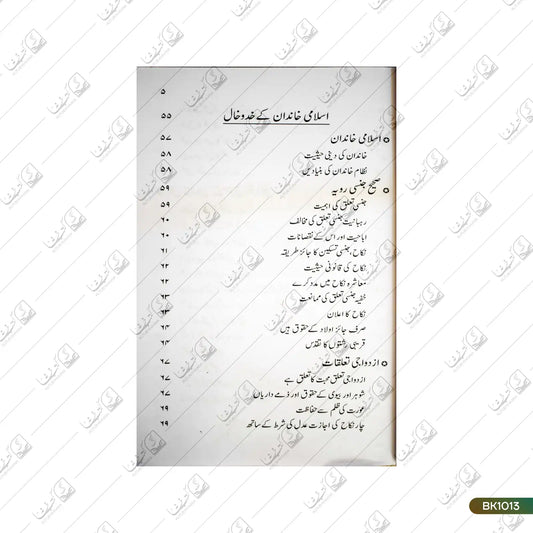 ۵
اسلامی خاندان کے خدوخال ۵۵
اسلامی خاندان ۵۷
خاندان کی دینی حیثیت ۵۸
نظام خاندان کی بنیادیں ۵۸
صحیح جنسی رویہ ۵۹
جنسی تعلق کی اہمیت ۵۹
رہبانیت جنسی تعلق کی مخالف ۶۰
اباحیت اور اس کے نقصانات ۶۰
نکاح، جنسی تسکین کا جائز طریقہ ۶۱
نکاح کی قانونی حیثیت ۶۲
معاشرہ نکاح میں مدد کرے ۶۲
خفیہ جنسی تعلق کی ممانعت ۶۳
نکاح کا اعلان ۶۳
صرف جائز اولاد کے حقوق ہیں ۶۴
قریبی رشتوں کا تقدس ۶۴
ازدواجی تعلقات ۶۷
ازدواجی تعلق محبت کا تعلق ہے ۶۷
شوہر اور بیوی کے حقوق اور ذمے داریاں ۶۷
عورت کی ظلم سے حفاظت ۶۹
چار نکاح کی اجازت عدل کی شرط کے ساتھ ۶۹
BK1013